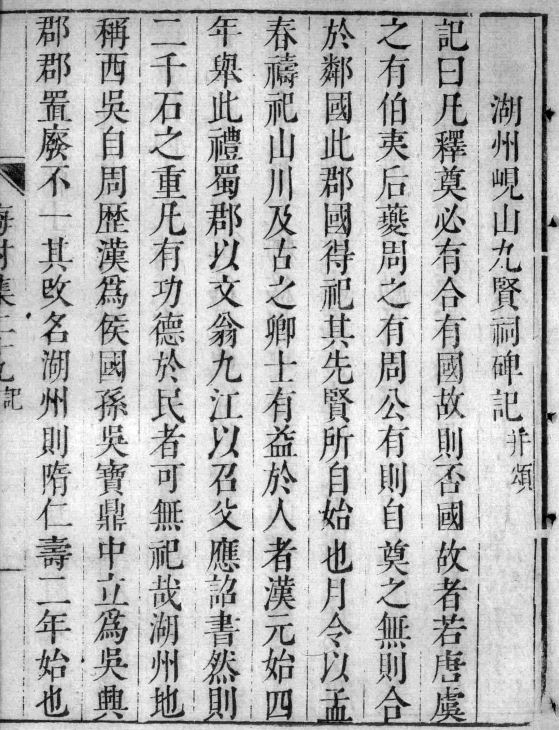 湖州峴山九賢祠碑記并頌
記曰凡釋奠必有合有國故則否國故者若唐虞
之有伯夷后夔周之有周公有則自奠之無則合
於鄰國此郡國得祀其先賢所自始也月令以孟
春禱祀山川及古之卿士有益於人者漢元始四
年舉此禮蜀郡以文翁九江以召父應詔書然則
二千石之重凡有功德於民者可無祀哉湖州地
稱西吳自周歷漢為侯國孫吳寶鼎中立為吳興
郡郡置廢不一其改名湖州則隋仁壽二年始也